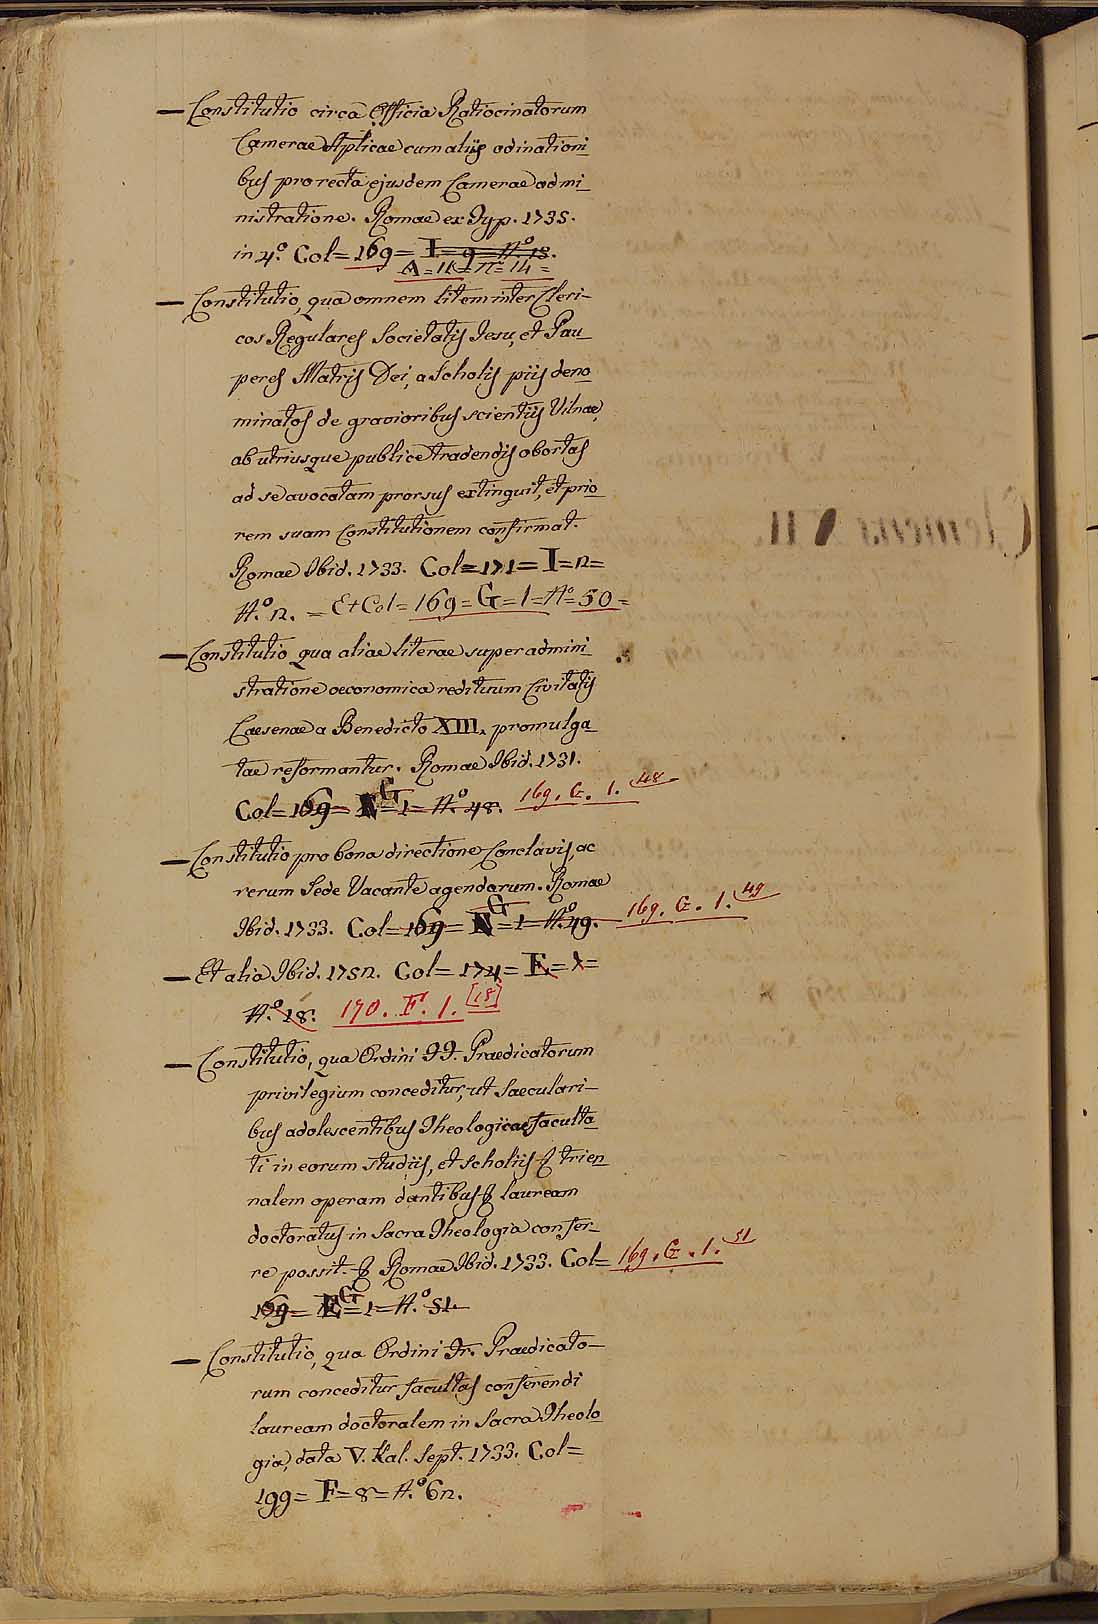 — Constitutio circa Officia Ratiocinatorum
Camerae Aplicae cum aliis odinationi_
bus pro recta ejusdem Camerae admi_
nistratione. Romae ex Typ. 1735.
in 4.º Col= 169= I= 9= N.º 18.
A= 11= N= 14=
— Constitutio, qua omnem litem inter Cleri-
cos Regulares Societatis Jesu, et Pau_
peres Matris Dei, a Scholis piis deno_
minatos de gravioribus scientiis Vilnae,
ab utriusque publice tradendis obortas
ad se avocatam prorsus extinguit, et prio_
rem suam Constitutionem confirmat.
Romae Ibid. 1733. Col= 171= I= 2=
N.º 2. = Et Col= 169= G= 1= Nº= 50=
— Constitutio qua aliae literae super admini_
stratione oeconomica redituum Civitatis
Caesenae a Benedicto XIII. promulga_
tae reformantur. Romae Ibid. 1731.
Col= 169= G= 1= N.º 48. 169. G. 1. 48
— Constitutio pro bona directione Conclavis, ac
rerum Sede Vacante agendarum. Romae
Ibid. 1733. Col= 169= N G= 1= N.º 49. 169. G. 1. 49
— Et alia Ibid. 1752. Col= 174= E= 1=
N.º 18. 170. F. 1. [18]
— Constitutio, qua Ordini FF. Praedicatorum
privilegium conceditur, ut Saeculari-
bus adolescentibus Theologicae faculta_
ti in eorum studiis, et scholiis & trien_
nalem operam dantibus & lauream
doctoratus in Sacra Theologia confer_
re possit. & Romae Ibid. 1733. Col= 169. G. 1. 51
169= E G= 1= N.º 51.
— Constitutio, qua Ordini Fr. Praedicato-
rum conceditur facultas conferendi
lauream doctoralem in Sacra Theolo_
gia, data V. Kal. Sept. 1733. Col=
199= F= 8= N.º 62.